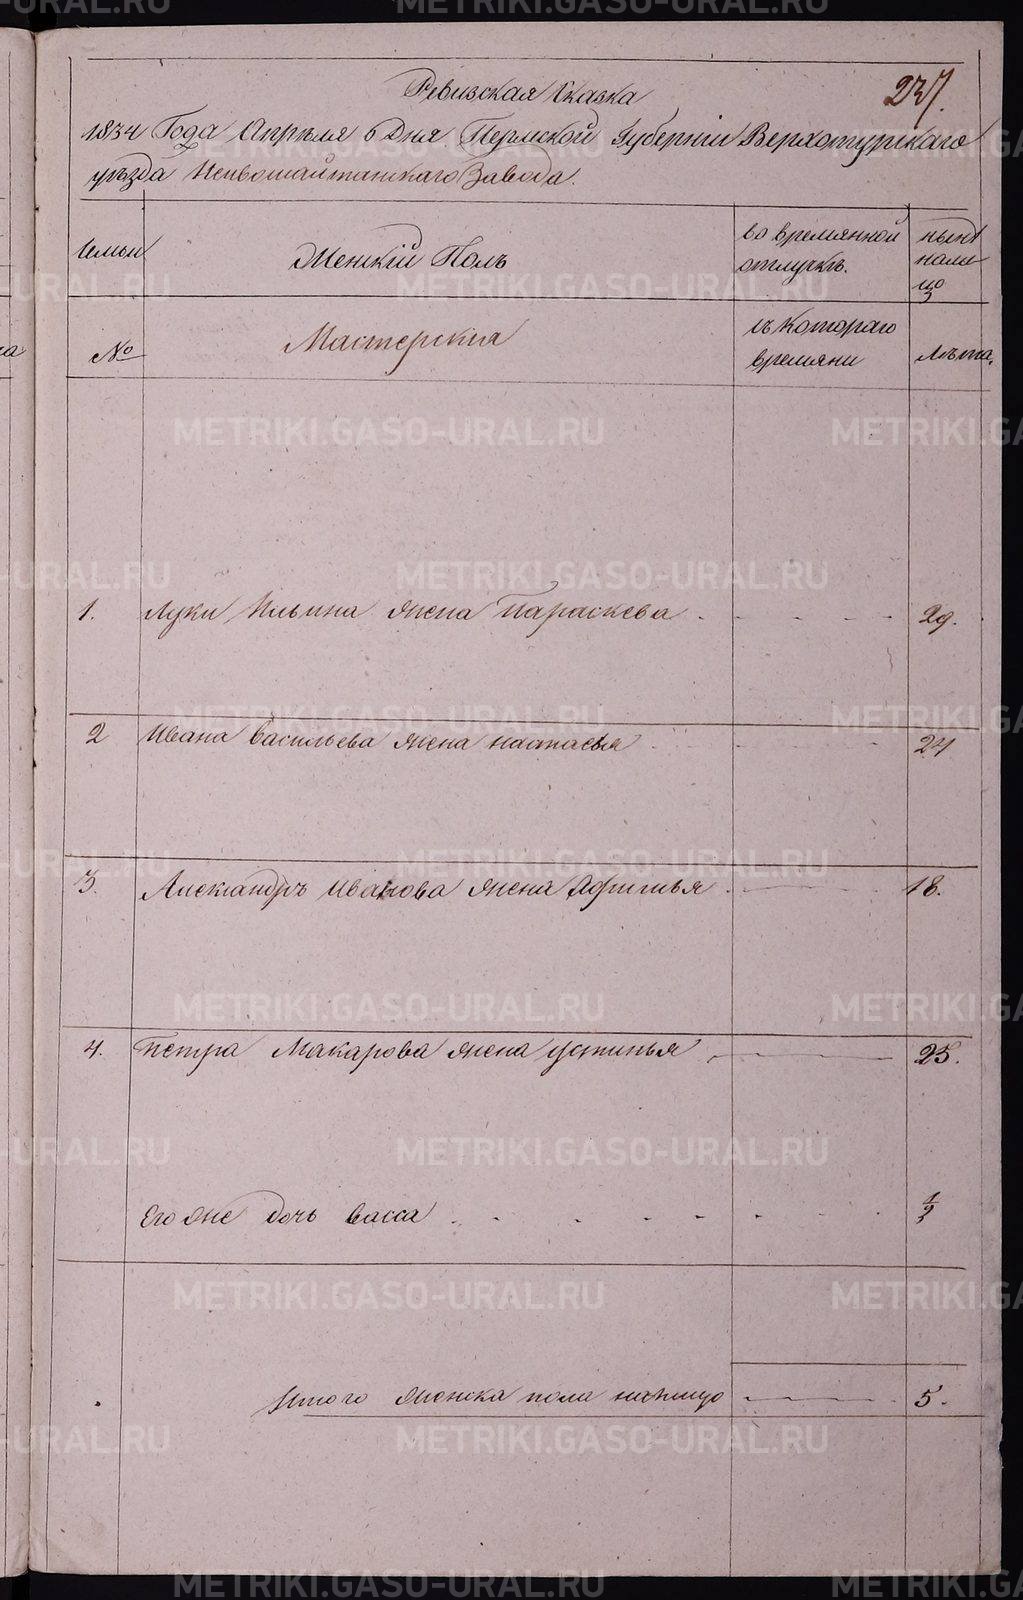 Ревизская Сказка
237.
1834 Года Апреля 6 Дня Пермской Губернiи Верхотурскаго
уѣзда Невьошайтанскаго Завода.
Семьи
Женскiй Полъ
во времянной
отлучкѣ.
нынѣ
нали
цо
№
Мастерскiя
съ котораго
времяни
Лѣта.
1. Луки Ильина жена Параскева 29.
2 Ивана Васильева жена настасья 24
3. Александръ Иванова жена Афимья 18.
4. петра Макарова жена устинья 25.
Его же дочь васса 1/2
Итого женска пола налицо 5.
METRIKI.GASO-URAL.RU